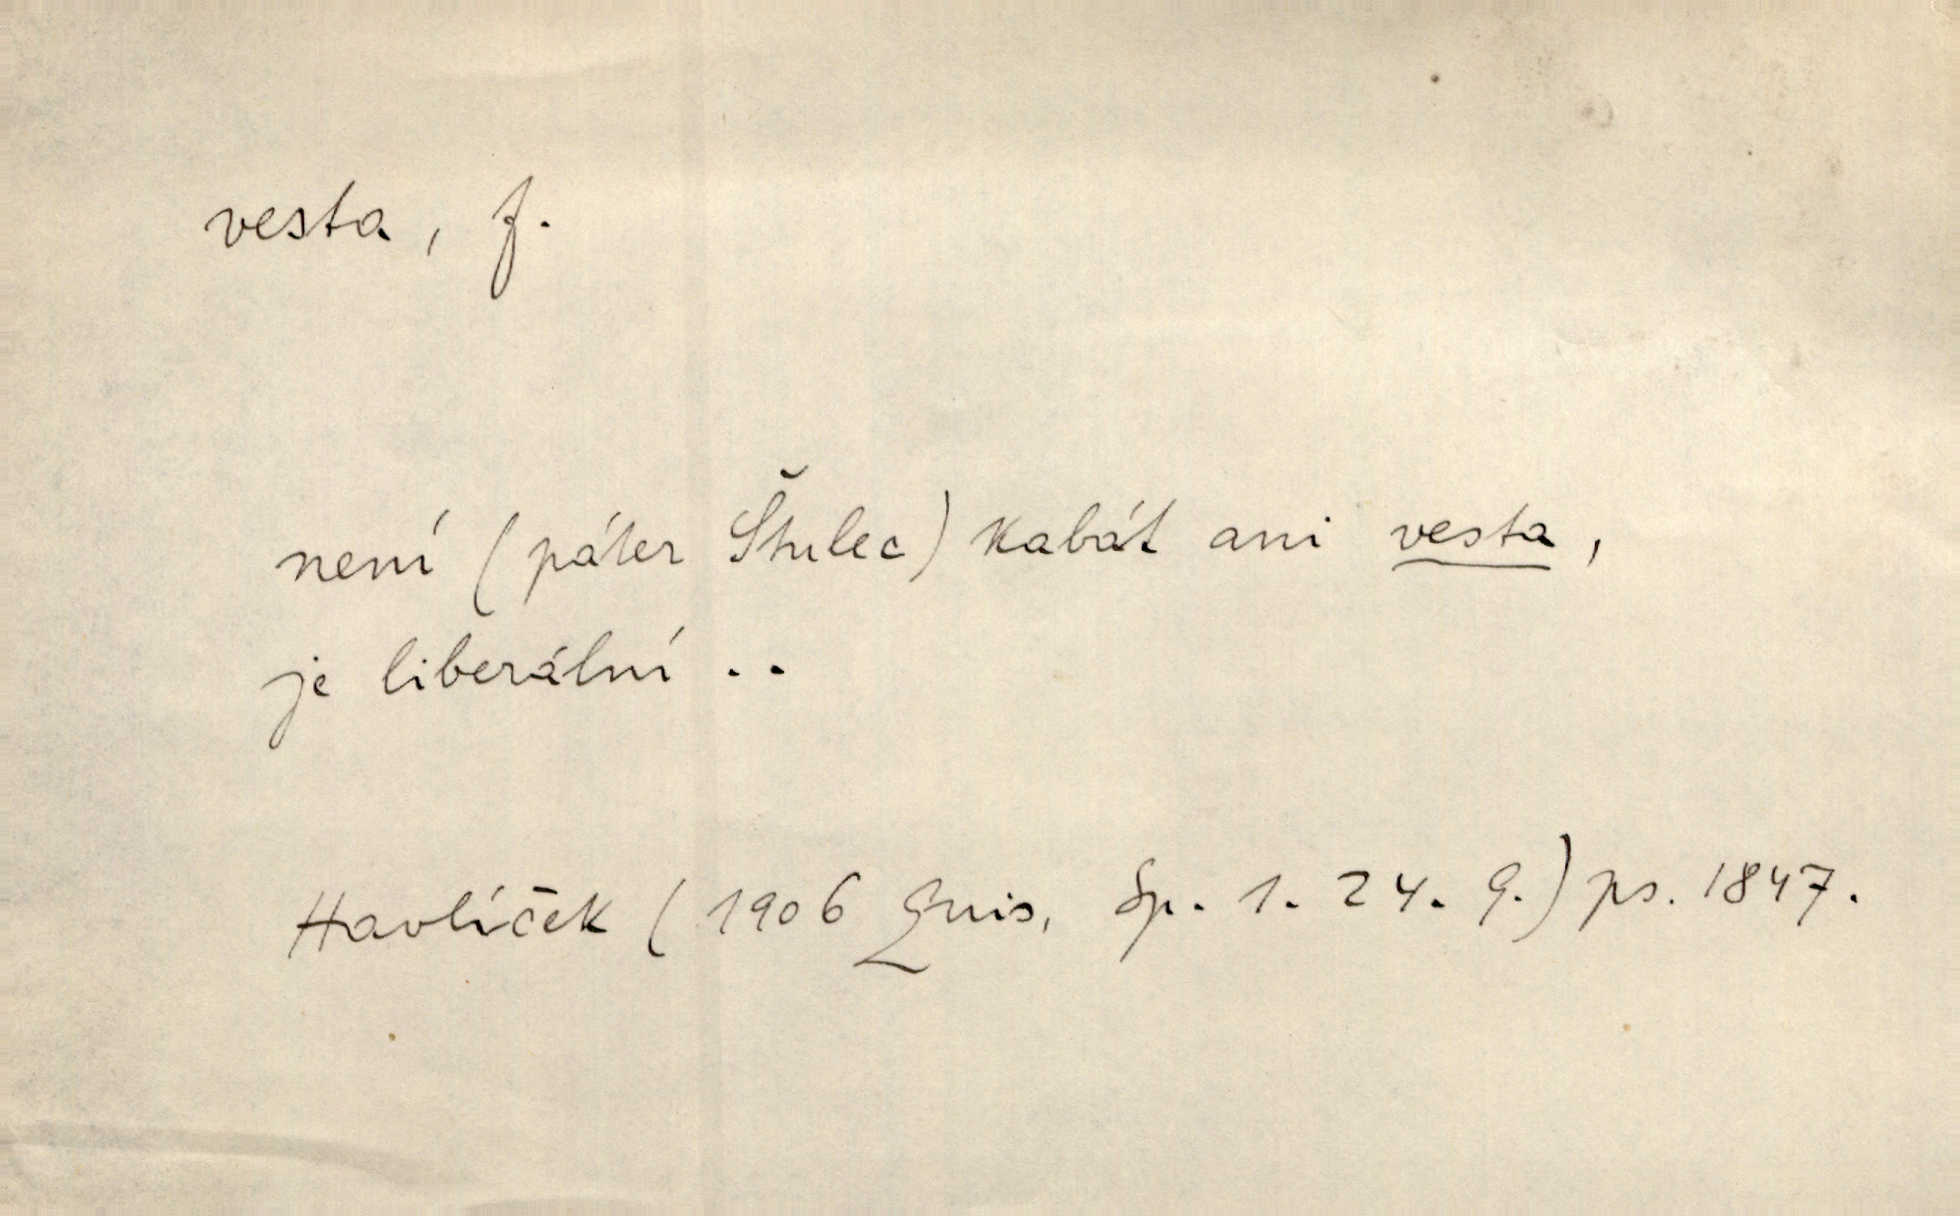 vesta, f.
není (páter Štulec) kabát ani vesta,
je liberální ..
Havlíček (1906 Quis, Sp. 1. 24. 9.) ps. 1847.